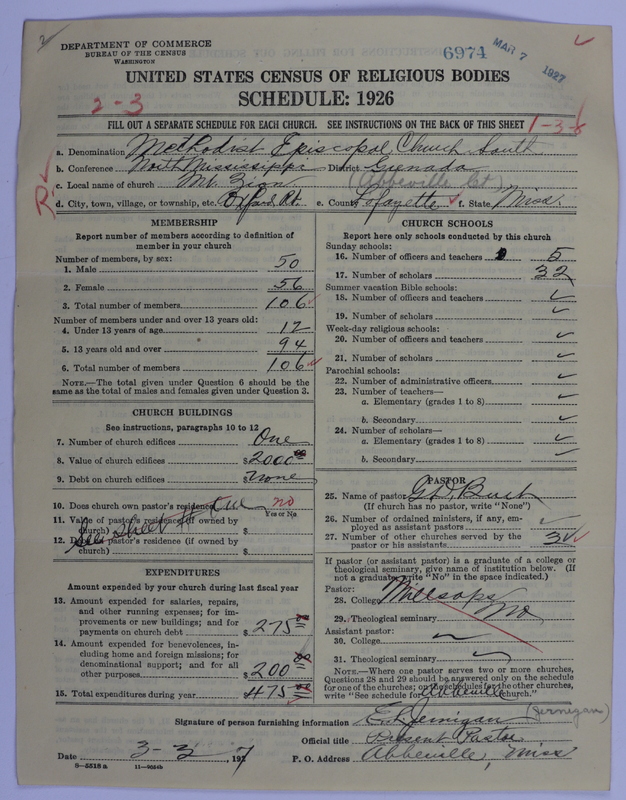 2
DEPARTMENT OF COMMERCE
BUREAU OF THE CENSUS
WASHINGTON
6974 MAR 7 1927
UNITED STATES CENSUS OF RELIGIOUS BODIES
SCHEDULE: 1926
2-3
FILL OUT A SEPARATE SCHEDULE FOR EACH CHURCH. SEE INSTRUCTIONS ON THE BACK OF THIS SHEET
1-3-8
a. Denomination Methodist Episcopal Church South
b. Conference North Mississippi District Grenada
c. Local name of church Mt. Zion (Abbeville, Ct)
R.
d. City, town, village, or township, etc. Oxford, Rt. e. County Lafayette f. State Miss.
MEMBERSHIP
Report number of members according to definition of member in your church
Number of members, by sex:
1. Male 50
2. Female 56
3. Total number of members 106
Number of members under and over 13 years old:
4. Under 13 years of age 12
5. 13 years old and over 94
6. Total number of members 106
NOTE.—The total given under Question 6 should be the same as the total of males and females given under Question 3.
CHURCH BUILDINGS
See instructions, paragraphs 10 to 12
7. Number of church edifices One
8. Value of church edifices $2000.00
9. Debt on church edifices $ none
10. Does church own pastor's residence One no
Yes or No
11. Value of pastor's residence (if owned by church) $
See sheet #
12. Debt pastor's residence (if owned by church) $
EXPENDITURES
Amount expended by your church during last fiscal year
13. Amount expended for salaries, repairs, and other running expenses; for improvements or new buildings; and for payments on church debt $275.00
14. Amount expended for benevolences, including home and foreign missions; for denominational support; and for all other purposes $200.00
15. Total expenditures during year 475.00
CHURCH SCHOOLS
Report here only schools conducted by this church
Sunday schools:
16. Number of officers and teachers 5
17. Number of scholars 32
Summer vacation Bible schools:
18. Number of officers and teachers
19. Number of scholars
Week-day religious schools:
20. Number of officers and teachers
21. Number of scholars
Parochial schools:
22. Number of administrative officers
23. Number of teachers—
a. Elementary (grades 1 to 8)
b. Secondary
24. Number of scholars—
a. Elementary (grades 1 to 8)
b. Secondary
PASTOR
25. Name of pastor
(If church has no pastor, write "None")
26. Number of ordained ministers, if any, employed as assistant pastors
27. Number of other churches served by the pastor or his assistants 3
If pastor (or assistant pastor) is a graduate of a college or theological seminary, give name of institution below. (If not a graduate, write "No" in the space indicated.)
Pastor:
28. College Millsaps
29. Theological seminary No
Assistant pastor:
30. College
31. Theological seminary
NOTE.—Where one pastor serves two or more churches, Questions 28 and 29 should be answered only on the schedule for one of the churches; on the schedules for the other churches, write "See schedule for Abbeville church."
Signature of person furnishing information E. L. Jernigan (Jernigan)
Official title Present Pastor
Date 3-3, 1927 P. O. Address Abbeville, Miss
8—5518 a 11—9054b